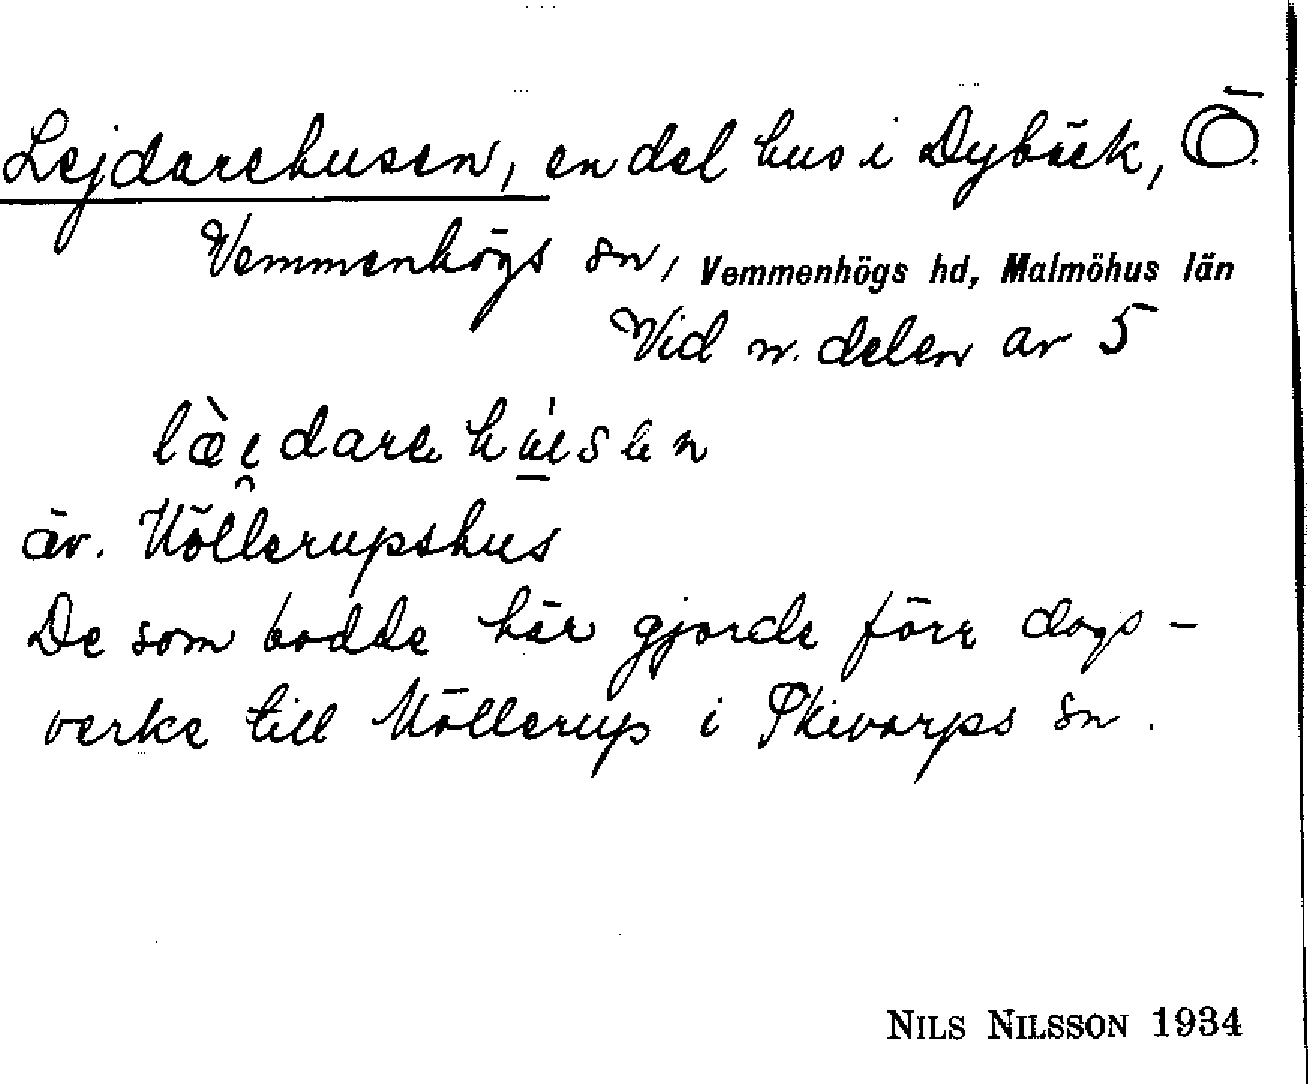 Lejdarehusen, en del hus i Dybäck, Ö.
Vemmenhögs sn, Vemmenhögs hd, Malmöhus län
Vid n. delen av 5
læ̀i̯darehu̱sen
äv. Möllerupshus
De som bodde här gjorde förr dags-
verke till Möllerup i Skivarps sn.
NILS NILSSON 1934